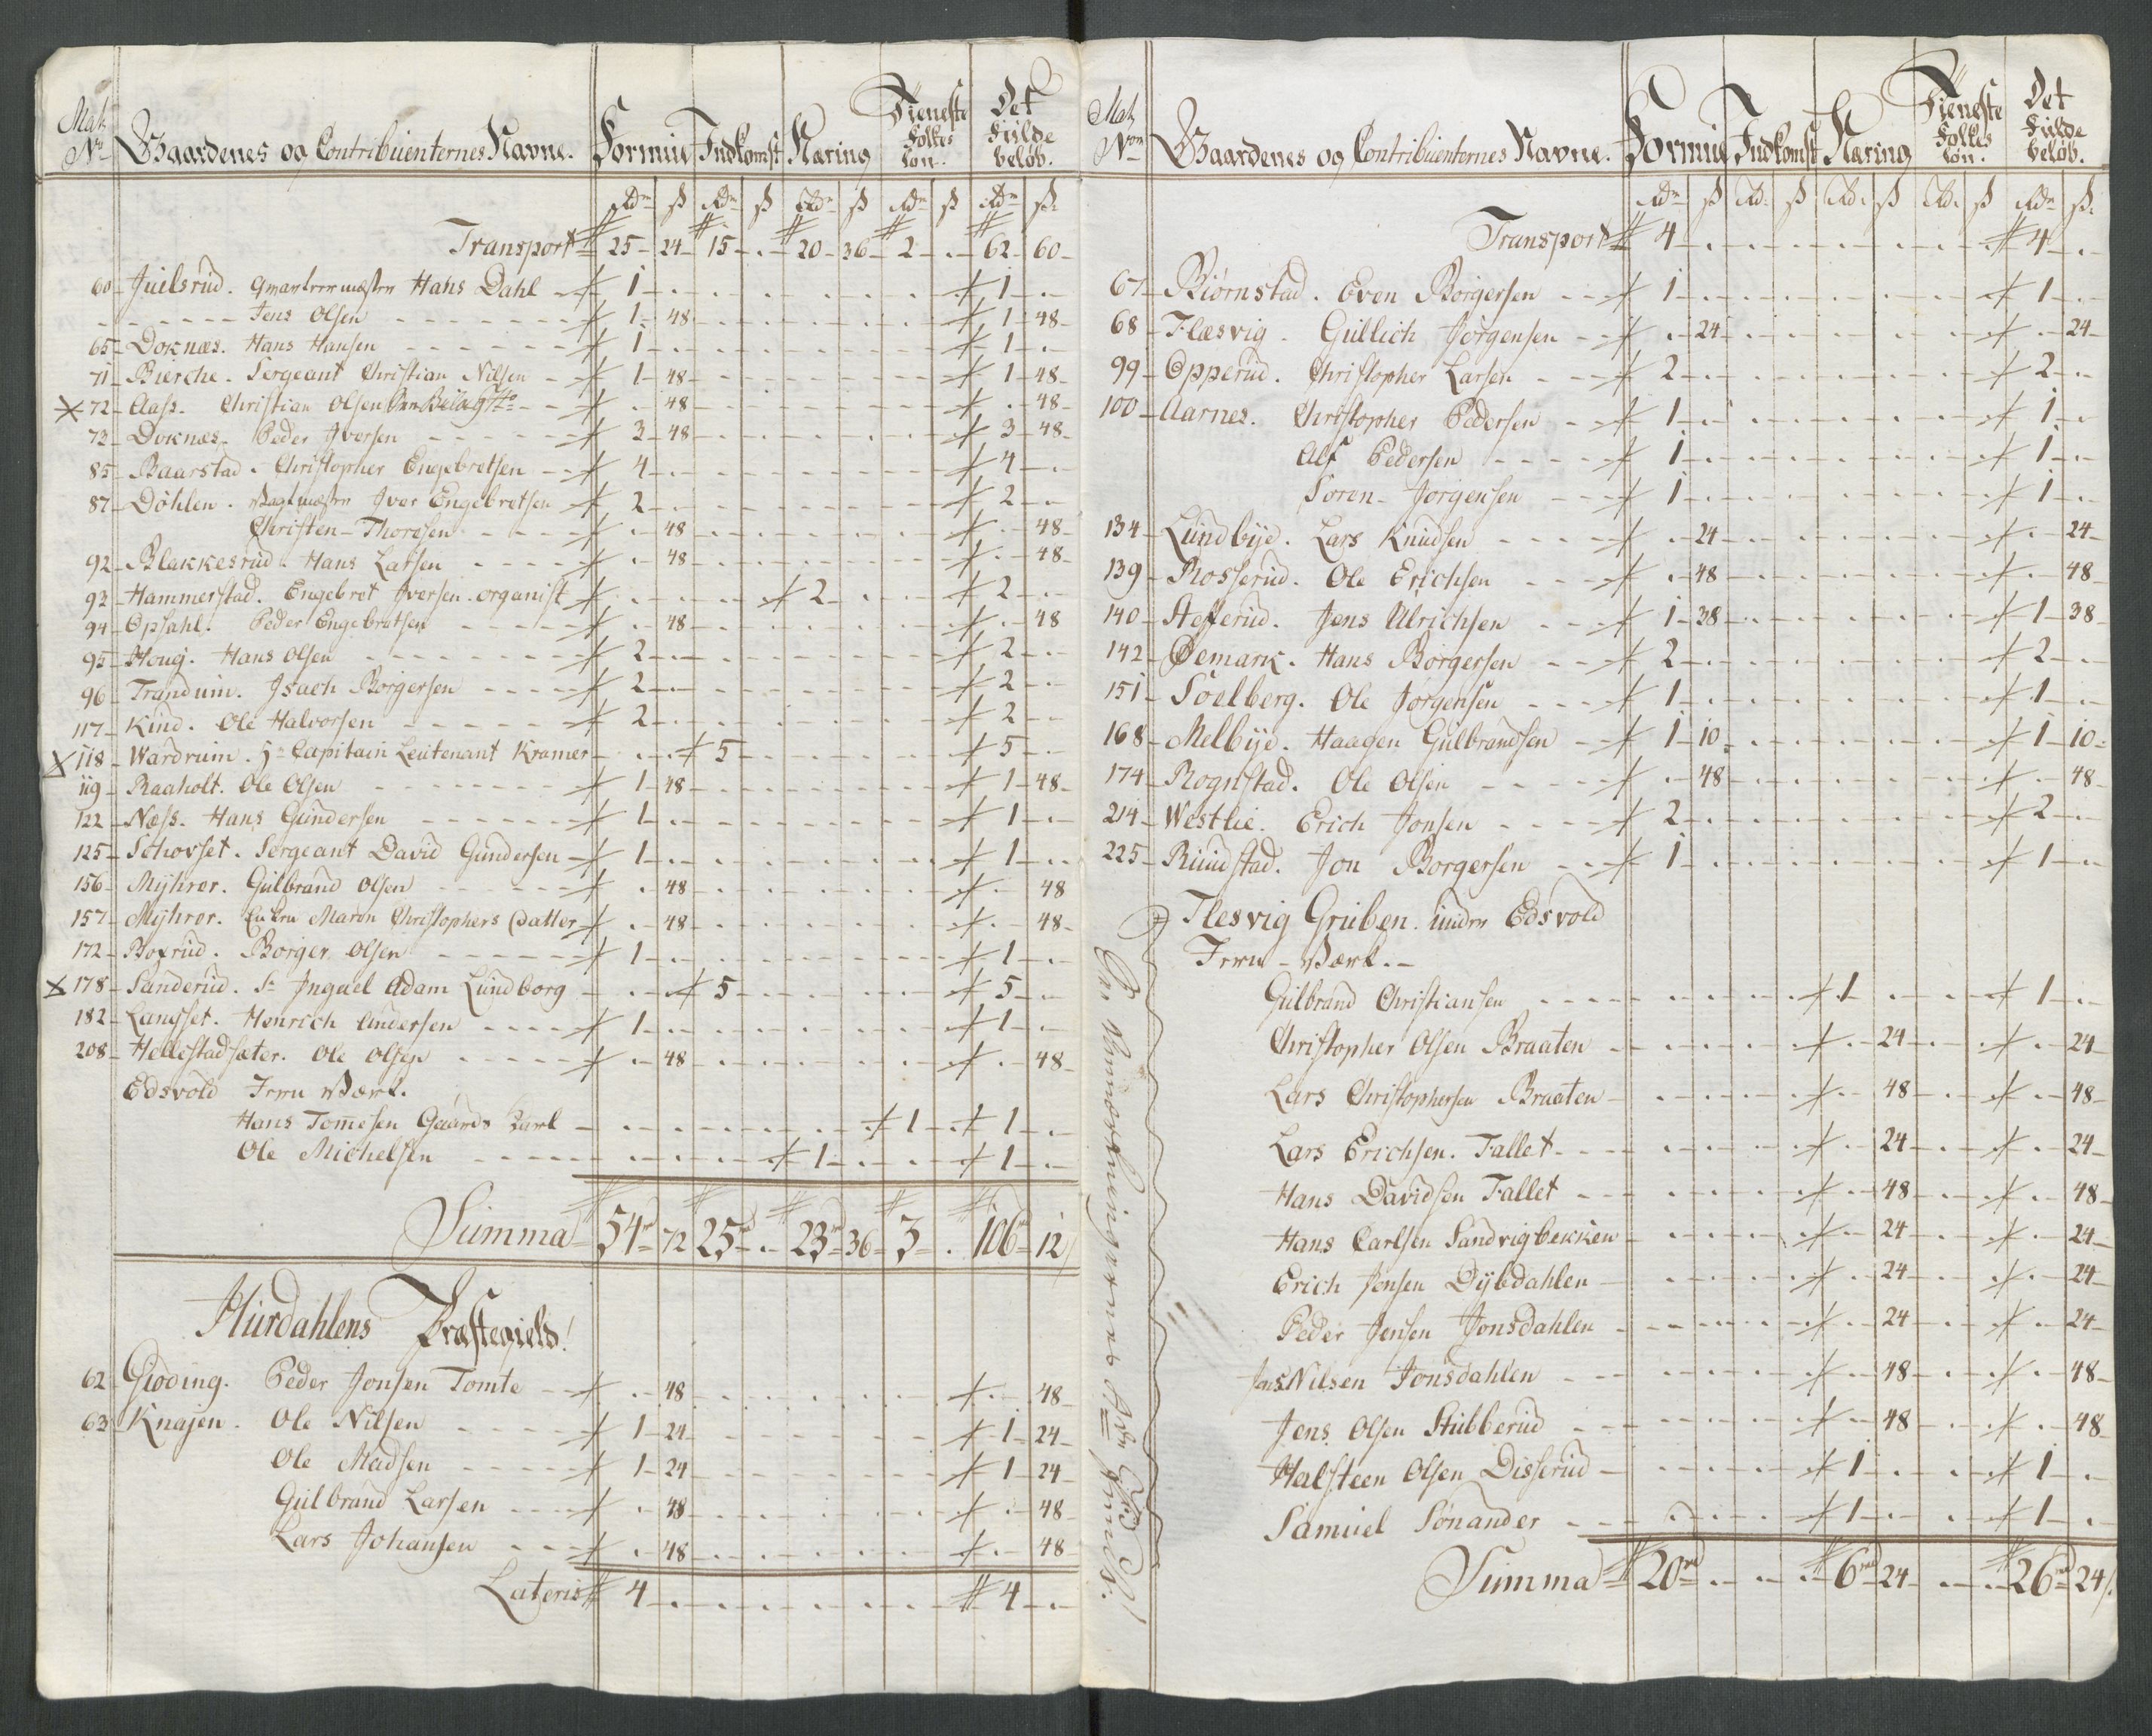 Mat. No. Gaardenes og Contribuenternes Navne. Formue Indkomst Næring Tieneste Folkes Løn. Det Fulde beløb.
Rdr ß Rdr ß Rdr ß Rdr ß Rdr ß.
Transport 25 24 15 . 20 36 2 . 62 60
60 Juilsrud. Hans Dahl 1 . 1 .
Jens Olsen 1 48 1 48
65 Doknæs. Hans Hansen 1 . 1 .
71 Bierche. Sergeant Christian Nilsen 1 48 1 48
72 Aass. Christian Olsen . 48 . 48
73 Doknæs. Peder Iversen 3 48 3 48
85 Baarstad. Christopher Engebretsen 4 . 4 .
87 Döhlen. Iver Engebretsen 2 . 2 .
Christen Thoresen . 48 . 48
92 Blakkesrud. Hans Larsen . 48 . 48
93 Hammerstad. Engebret Iversen. organist 2 . 2 .
94 Opsahl. Peder Engebretsen . 48 . 48
95 Houg. Hans Olsen 2 . 2 .
96 Trandum. Isach Borgersen 2 . 2 .
117 Kind. Ole Halvorsen 2 . 2 .
118 Wardrum. Hr Capitain Leutenant Kramer 5 . 5 .
119 Raaholt. Ole Olsen 1 48 1 48
122 Næss. Hans Gundersen 1 . 1 .
125 Schovset. Sergeant David Gundersen 1 . 1 .
156 Myhrer. Gulbrand Olsen . 48 . 48
157 Myhrer. Enken Maren Christophers Datter . 48 . 48
172 Boxrud. Borger Olsen 1 . 1 .
178 Sanderud. Sr Inguel Adam Lundborg 5 . 5 .
182 Langset. Henrich Andersen 1 . 1 .
208 Hellestadsæter. Ole Olsen . 48 . 48
Edsvold Jern Værk.
Hans Tomesen Gaards Karl 1 . 1 .
Ole Michelsen 1 . 1 .
Summa 54 72 25 . 23 36 3 . 106 12
Hurdahlens Præstegield!
62 Gioding. Peder Jonsen Tomte . 48 . 48
63 Knajen. Ole Nilsen 1 24 1 24
Ole Madsen 1 24 1 24
Gulbrand Larsen . 48 . 48
Lars Johansen . 48 . 48
Lateris 4 . 4 .
Mat. No. Gaardenes og Contribuenternes Navne. Formue Indkomst Næring Tieneste Folkes løn. Det Fulde beløb.
Rdr ß Rd. ß Rd. ß Rd. ß Rdr ß.
Transport 4 . 4 .
67 Biørnstad. Even Borgersen 1 . 1 .
68 Flæsvig. Gullich Jørgensen . 24 . 24
99 Opperud. Christopher Larsen 2 . 2 .
100 Aarnes. Christopher Pedersen 1 . 1 .
Alf Pedersen 1 . 1 .
Soren Jørgensen 1 . 1 .
134 Lundbye. Lars Knudsen . 24 . 24
139 Rosserud. Ole Erichsen . 48 . 48
140 Stefferud. Jens Ulrichsen 1 38 1 38
142 Demark. Hans Borgersen 2 . 2 .
151 Soelberg. Ole Jørgensen 1 . 1 .
168 Melbye. Haagen Gulbrandsen 1 10 1 10
174 Rognstad. Ole Olsen . 48 . 48
214 Westlie. Erich Jonsen 2 . 2 .
225 Ruudstad. Jon Borgersen 1 . 1 .
Flesvig Gruben. under Edsvold
Jern Værk.
Gulbrand Christiansen 1 . 1 .
Christopher Olsen Braaten . 24 . 24
Lars Christophersen Braaten . 48 . 48
Lars Erichsen. Fallet . 24 . 24
Hans Davidsen Fallet . 48 . 48
Hans Carlsen Sandvigbekken . 24 . 24
Erich Jensen Dybdahlen . 24 . 24
Peder Jensen Jonsdahlen . 24 . 24
Jens Nilsen Jonsdahlen . 48 . 48
Jens Olsen Stubberud . 48 . 48
Halsteen Olsen Disserud 1 . 1 .
Samuel Sönander 1 . 1 .
Summa 20 . 6 24 . 26 24